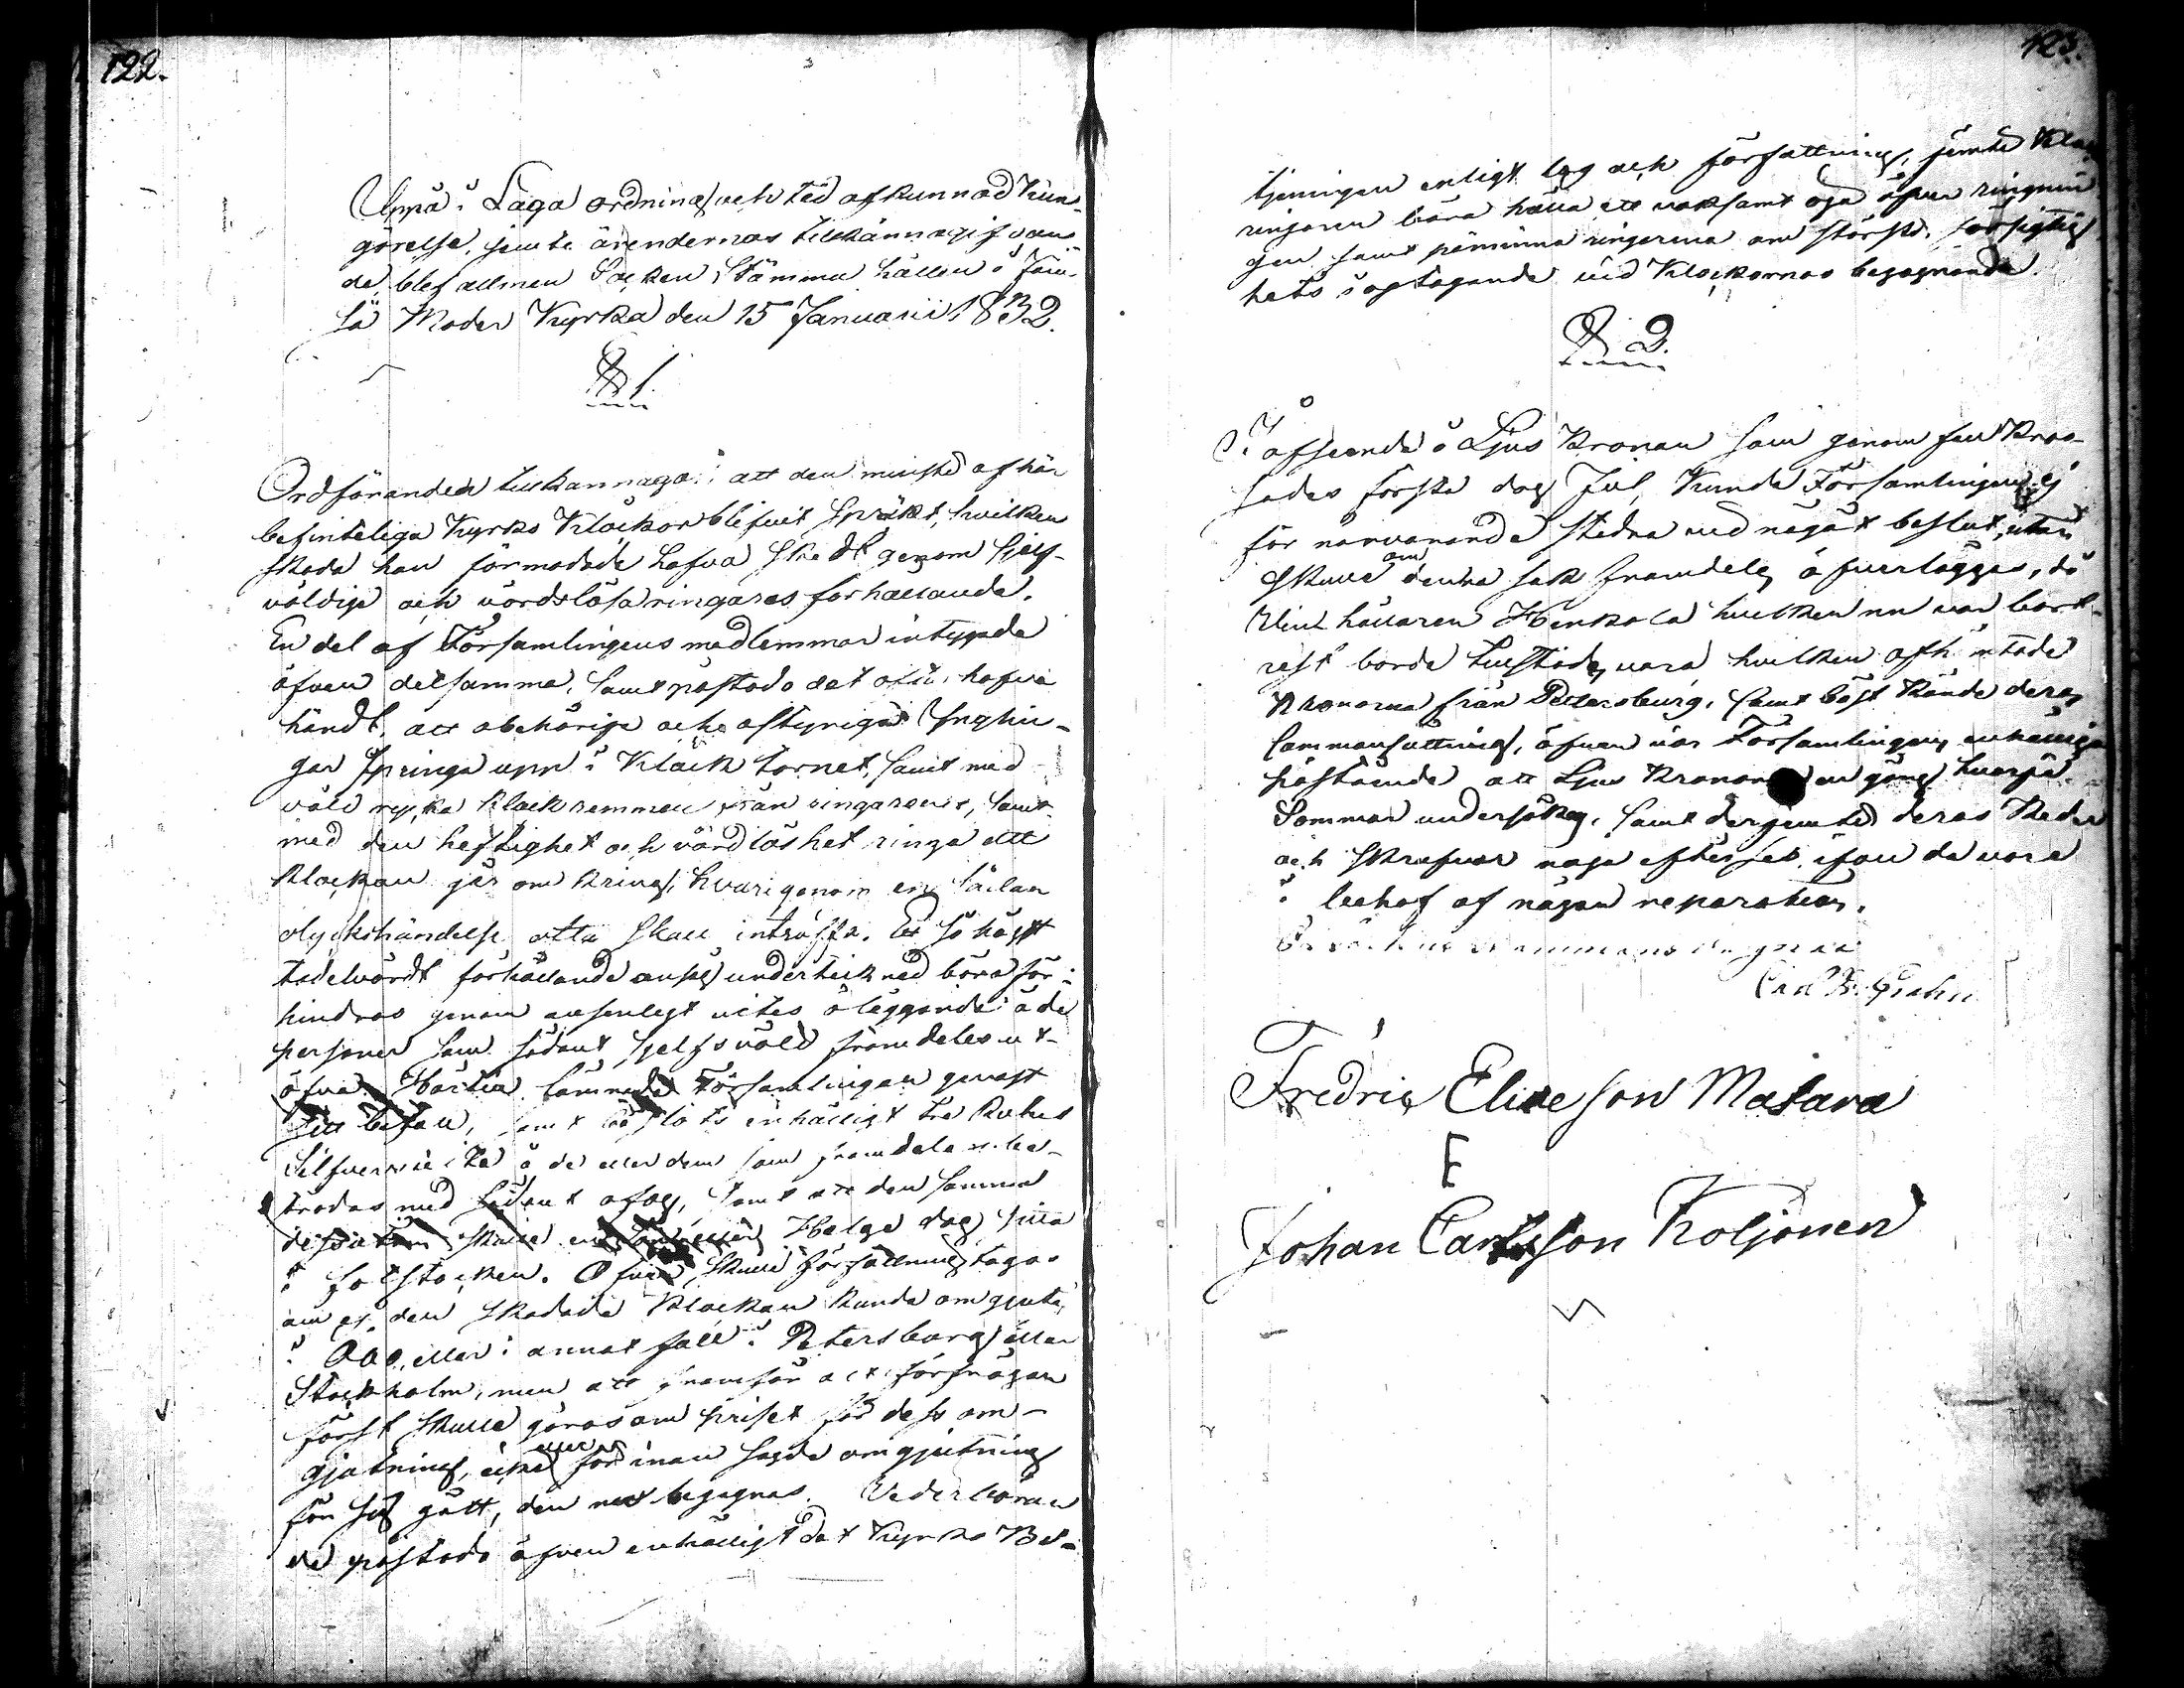 122.
Uppå i Laga ordning och tid afkunnad kun-
görelse, jemte ärendernas tillkännagifvan-
de, blef allmen Socken Stämma hållen i
Moder Kyrka den 15 Januarii 1832.
§ 1.
Ordföranden tillkannagaf: att den minsta af här
befinteliga Kyrko Klockor blifvit spräkt, hvilken
skada han förmodade hafva skedt genom sjelf-
våldige och vårdslösa ringares forhållande.
En del af Församlingens medlemmar intygade
äfven detsamma, samt påstodo det ofta hafva
händt, att obehörige och ostyriga Ynglin-
gar springa upp i Klock tornet, samt med
våld rycka klockremmen från ringarene, samt
med den heftighet och vårdlöshet ringa att
Klockan går om kring, hvarigenom en sådan
olyckshändelse skall inträffa. Et så högst
tadelvärdt förhållande ansåg undertecknad böra för-
hindras genom ansenligt vites åläggande å de
personer som sådant sjelfsvåld framdeles ut-
öfva. Härtill lämnade Församlingen genast
sitt bifall, samt beslöts enhälligt tre Rubel
Silfver vite å de eller dem som framdeles be-
trädas med sådant ofog, samt att den samma
dessutom skulle en Helge dag sitta
i fotstocken. Äfven skulle författning tagas
om ej den skadade Klockan kunde omgjutas
i Åbo, eller i annat fall i Petersburg eller
Stockholm, men att framför alt förfrågan
först skulle göras om priset för dess om-
gjutning, eller innan sagde omgjutning
för sig gått, den begagnas. Vederböran
de påstodo äfven enhälligt dat Kyrko Be-
123.
tjeningen enligt lag och författning, jemte
ringaren böra hålla ett vaksamt öga öfver ringnin
gen samt påminna ringarena om största försigtig
hets iagtagande vid Klockornas begagnande.
§ 2.
I afseende å Ljus Kronan som genom
sades första dag Jul, kunde Församlingen ej
för närvarande stadna vid något beslut, utan
skulle om denna sak framdeles öfverläggas, då
hållaren Henkola hvilken nu var bort-
rest borde tillstädes vara, hvilken afhämtade
Kronorna från Petersburg, samt bäst kände deras
sammansättning, äfven var Församlingens enhälliga
påstående att Ljus Kronorne en gång hvarje
Sommar undersökes, samt derjemte deras Kedor
och Skrufvar noga efterses, ifall de vore
i behof af någon reparation.
Carl Fr. Grahn
Fredric Elieson Matara
E
Johan Carlsson Koljonen